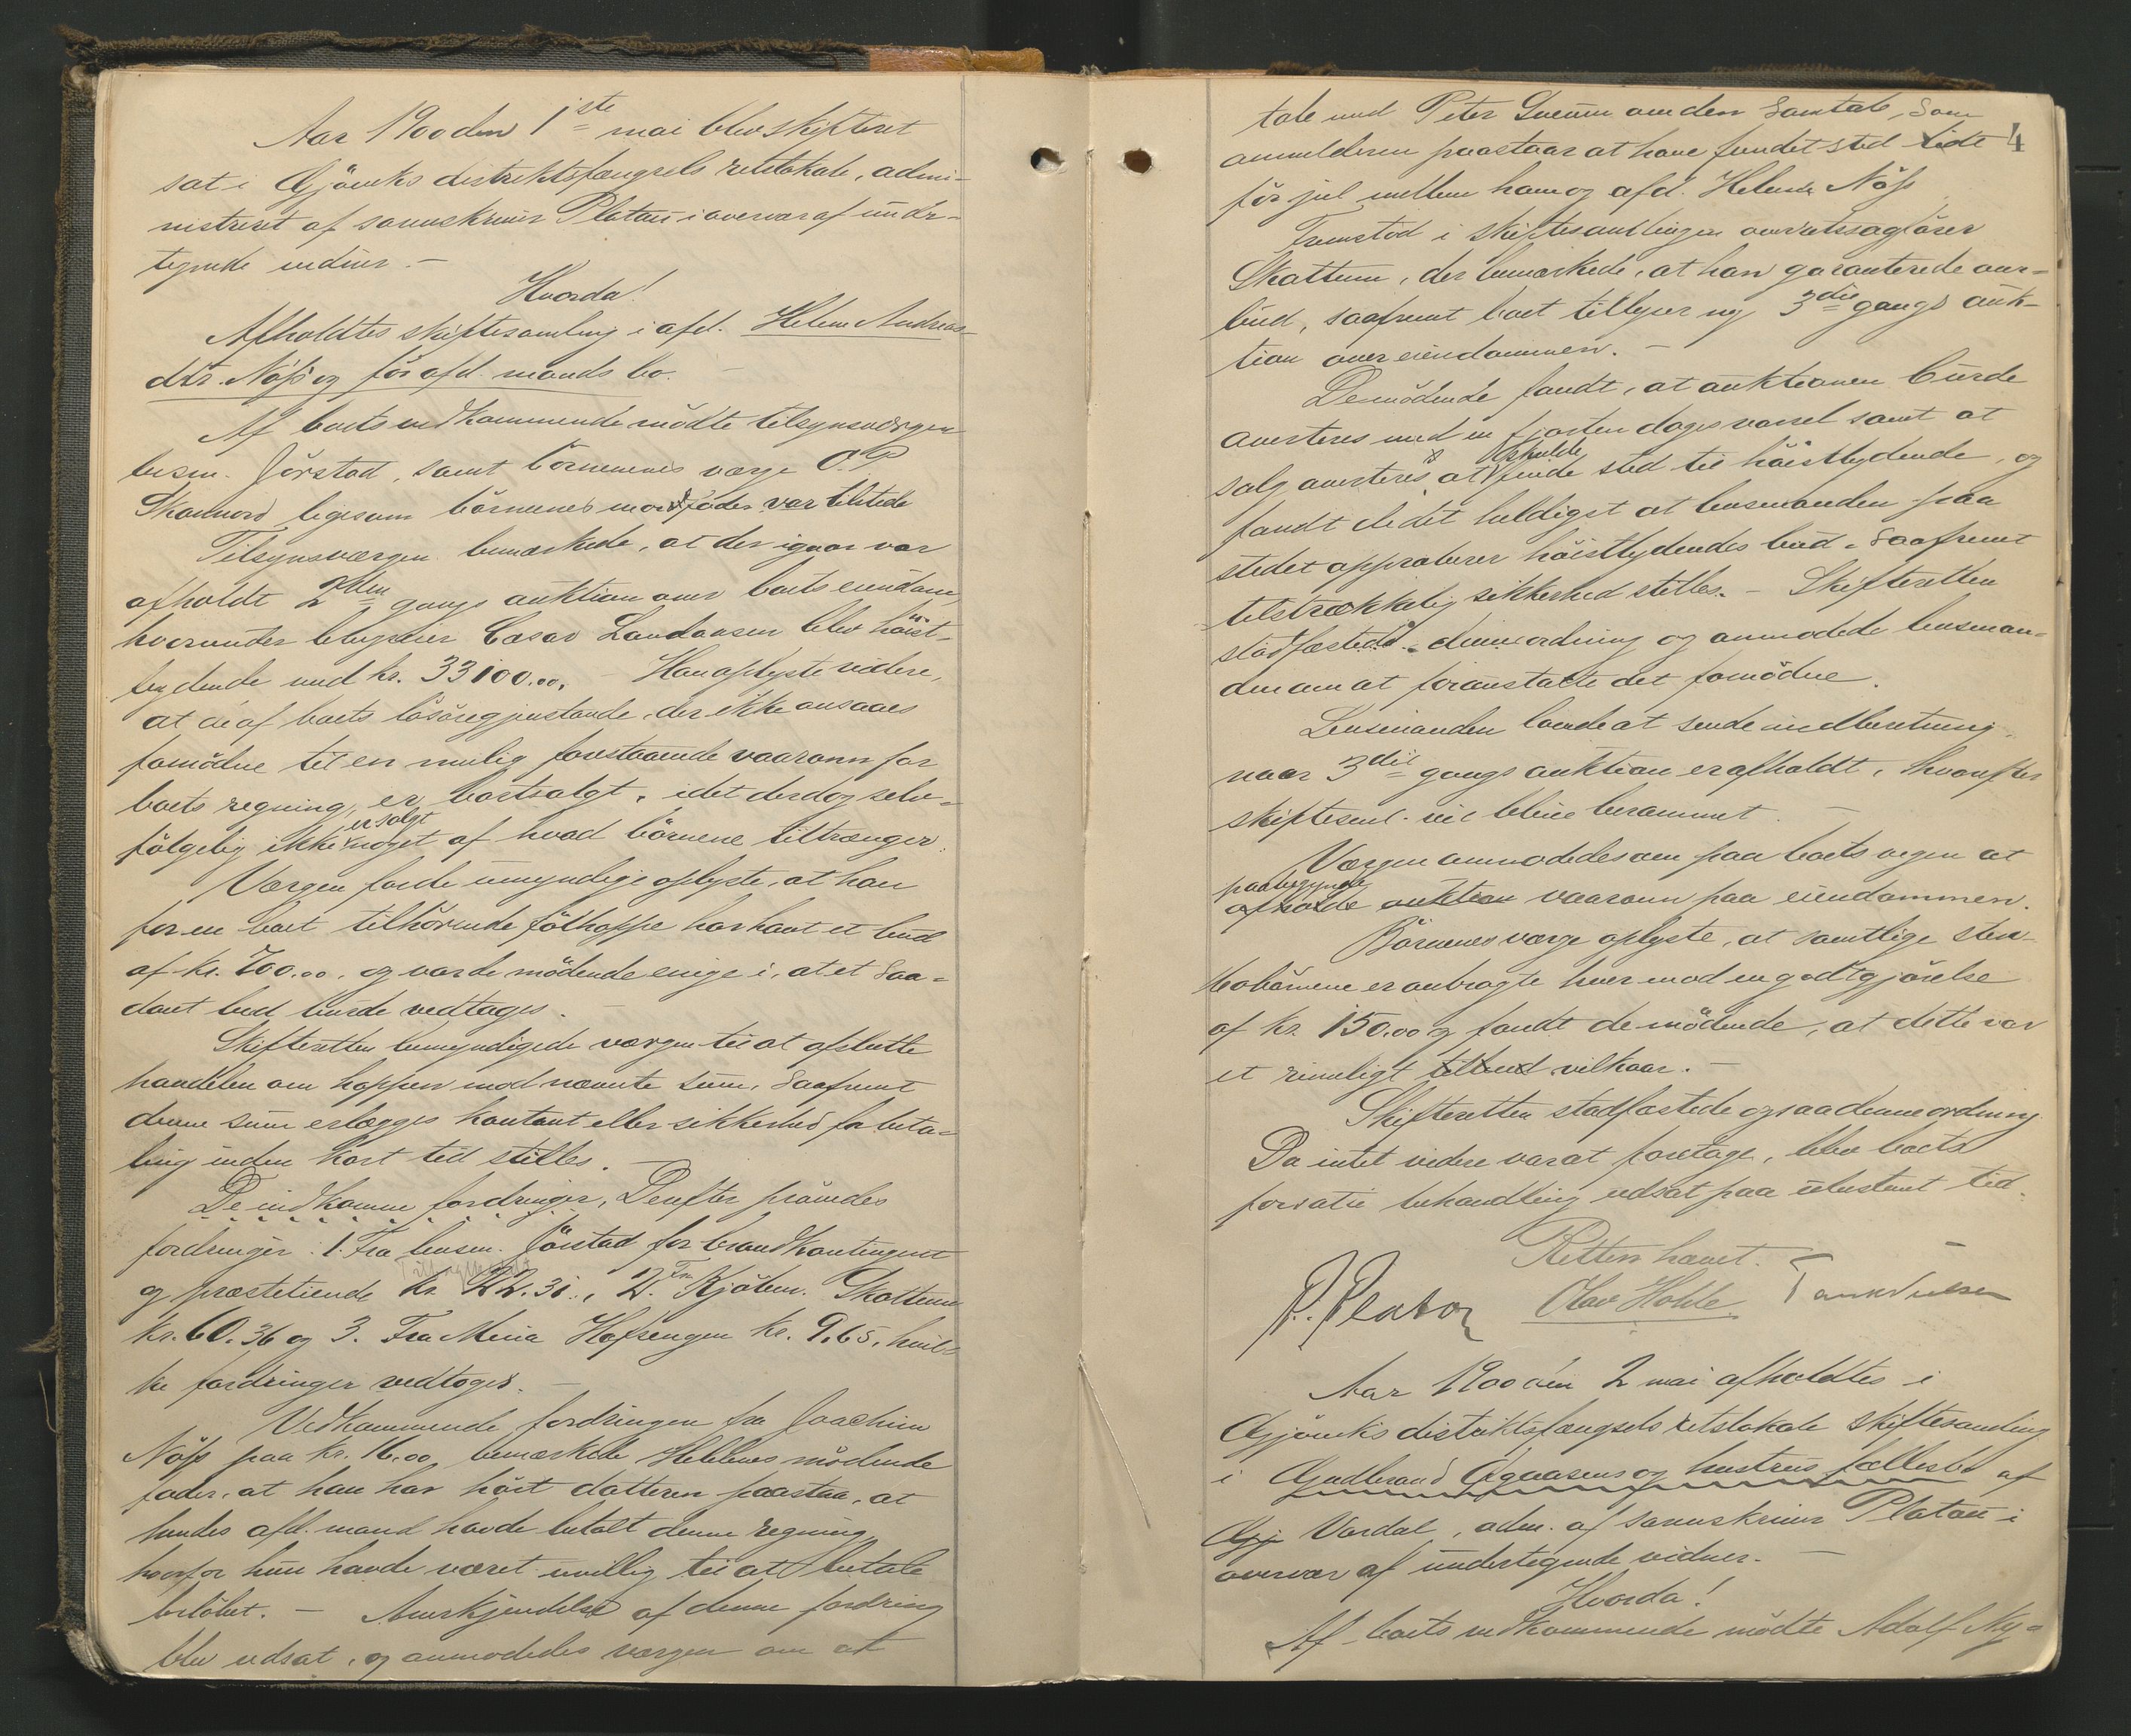 Aar 1900 den 1ste mai blev skifteret
sat i Gjöviks distriktsfængsels retslokale, admi-
nistreret af sorenskriver Platou i overvær af under-
tegnede vidner. –
Hvorda!
Afholdtes skiftesamling i afd. Helene Andreas-
dtr. Nöss og för afd. mands bo. –
Af boets vedkommende mödte tilsynsværgen
lensm. Jörstad, samt börnenes værge O. P.
Skonnord ligesom börnenes morfader var tilstede
Tilsynsværgen bemærkede, at der igaar var
afholdt 2den gangs auktion over boets eiendom,
hvorunder Cæsar Landansen blev höist-
bydende med kr. 33100.00. Han oplyste videre,
at de af boets lösöregjenstande, der ikke ansaaes
fornödne til en mulig forestaaende vaaronn for
boets regning, er bortsolgt, idet der dog selv-
fölgelig ikke er solgt noget af hvad börnene tiltrænger.
Værgen for de umyndige oplyste, at han
for en boet tilhörende fölhoppe har havt et bud
af kr. 700.00, og var de mödende enige i, at et saa-
dant bud burde vedtages. –
Skifteretten bemyndigede værgen til at afslutte
handelen om hoppen mod nævnte sum, saafremt
denne sum erlægges kontant eller sikkerhed for beta-
ling inden kort tid stilles. –
De indkomne fordringer, Derefter prövedes
fordringer: 1. Fra lensm. Jörstad for brandkontingent
og præstetiende kr. 22.31., 2. Fra Kjöbm. Skattum
kr. 60.36 og 3. Fra Mina Hofsengen kr. 9.65, hvil-
ke fordringer vedtoges. –
Vedkommende fordringen fra Joachim
Nöss paa kr. 16.00 bemærkede Helenes mödende
fader, at han har hört datteren paastaa, at
hendes afd. mand havde betalt denne regning,
hvorfor hun havde været uvillig til at betale
belöbet. – Anerkjendelse af denne fordring
blev udsat, og anmodedes værgen om at
4
tale med Peter om den samtale, som
anmelderen paastaar at have fundet sted lidt
för jul mellem ham og afd. Helene Nöss
Fremstod i skiftesamlingen overretssagförer
Skattum, der bemærkede, at han garanterede over-
bud, saafremt boet tillyser ny 3die gangs auk-
tion over eiendommen. –
De mödende fandt, at auktionen burde
averteres med en fjorten dages varsel samt at
salg averteres at skulde finde sted til höistbydende, og
fandt de det heldigst at lensmanden paa
stedet approberer höistbydendes bud, saafremt
tilstrækkelig sikkerhed stilles. – Skifteretten
stadfæstede denne ordning og anmodede lensman-
den om at foranstalte det fornödne.
Lensmanden lovede at sende indberetning,
naar 3die gangs auktion er afholdt, hvorefter
skiftesml. vil blive berammet. –
Værgen anmodedes om paa boets vegne at
paabegynde
afholde auktion vaaronn paa eiendommen.
Börnenes værge oplyste, at samtlige ster-
vbobörnene er anbragte hver mod en godtgjörelse
af kr. 150.00 og fandt de mödende, at dette var
et rimeligt tilbud vilkaar. –
Skifteretten stadfæstede ogsaa denne ordning
Da intet videre var at foretage, blev boets
forsatte behandling udsat paa ubestemt tid.
Retten hævet. –
P. Platou Olav Hohle
Aar 1900 den 2 mai afholdtes i
Gjöviks distriktsfængsels retslokale skiftesamling
i Gudbrand Agaasens og hustrus fællesbo af
Gj Vardal, adm. af sorenskriver Platou i
overvær af undertegnede vidner. –
Hvorda!
Af boets vedkommende mödte Adolf Ny-